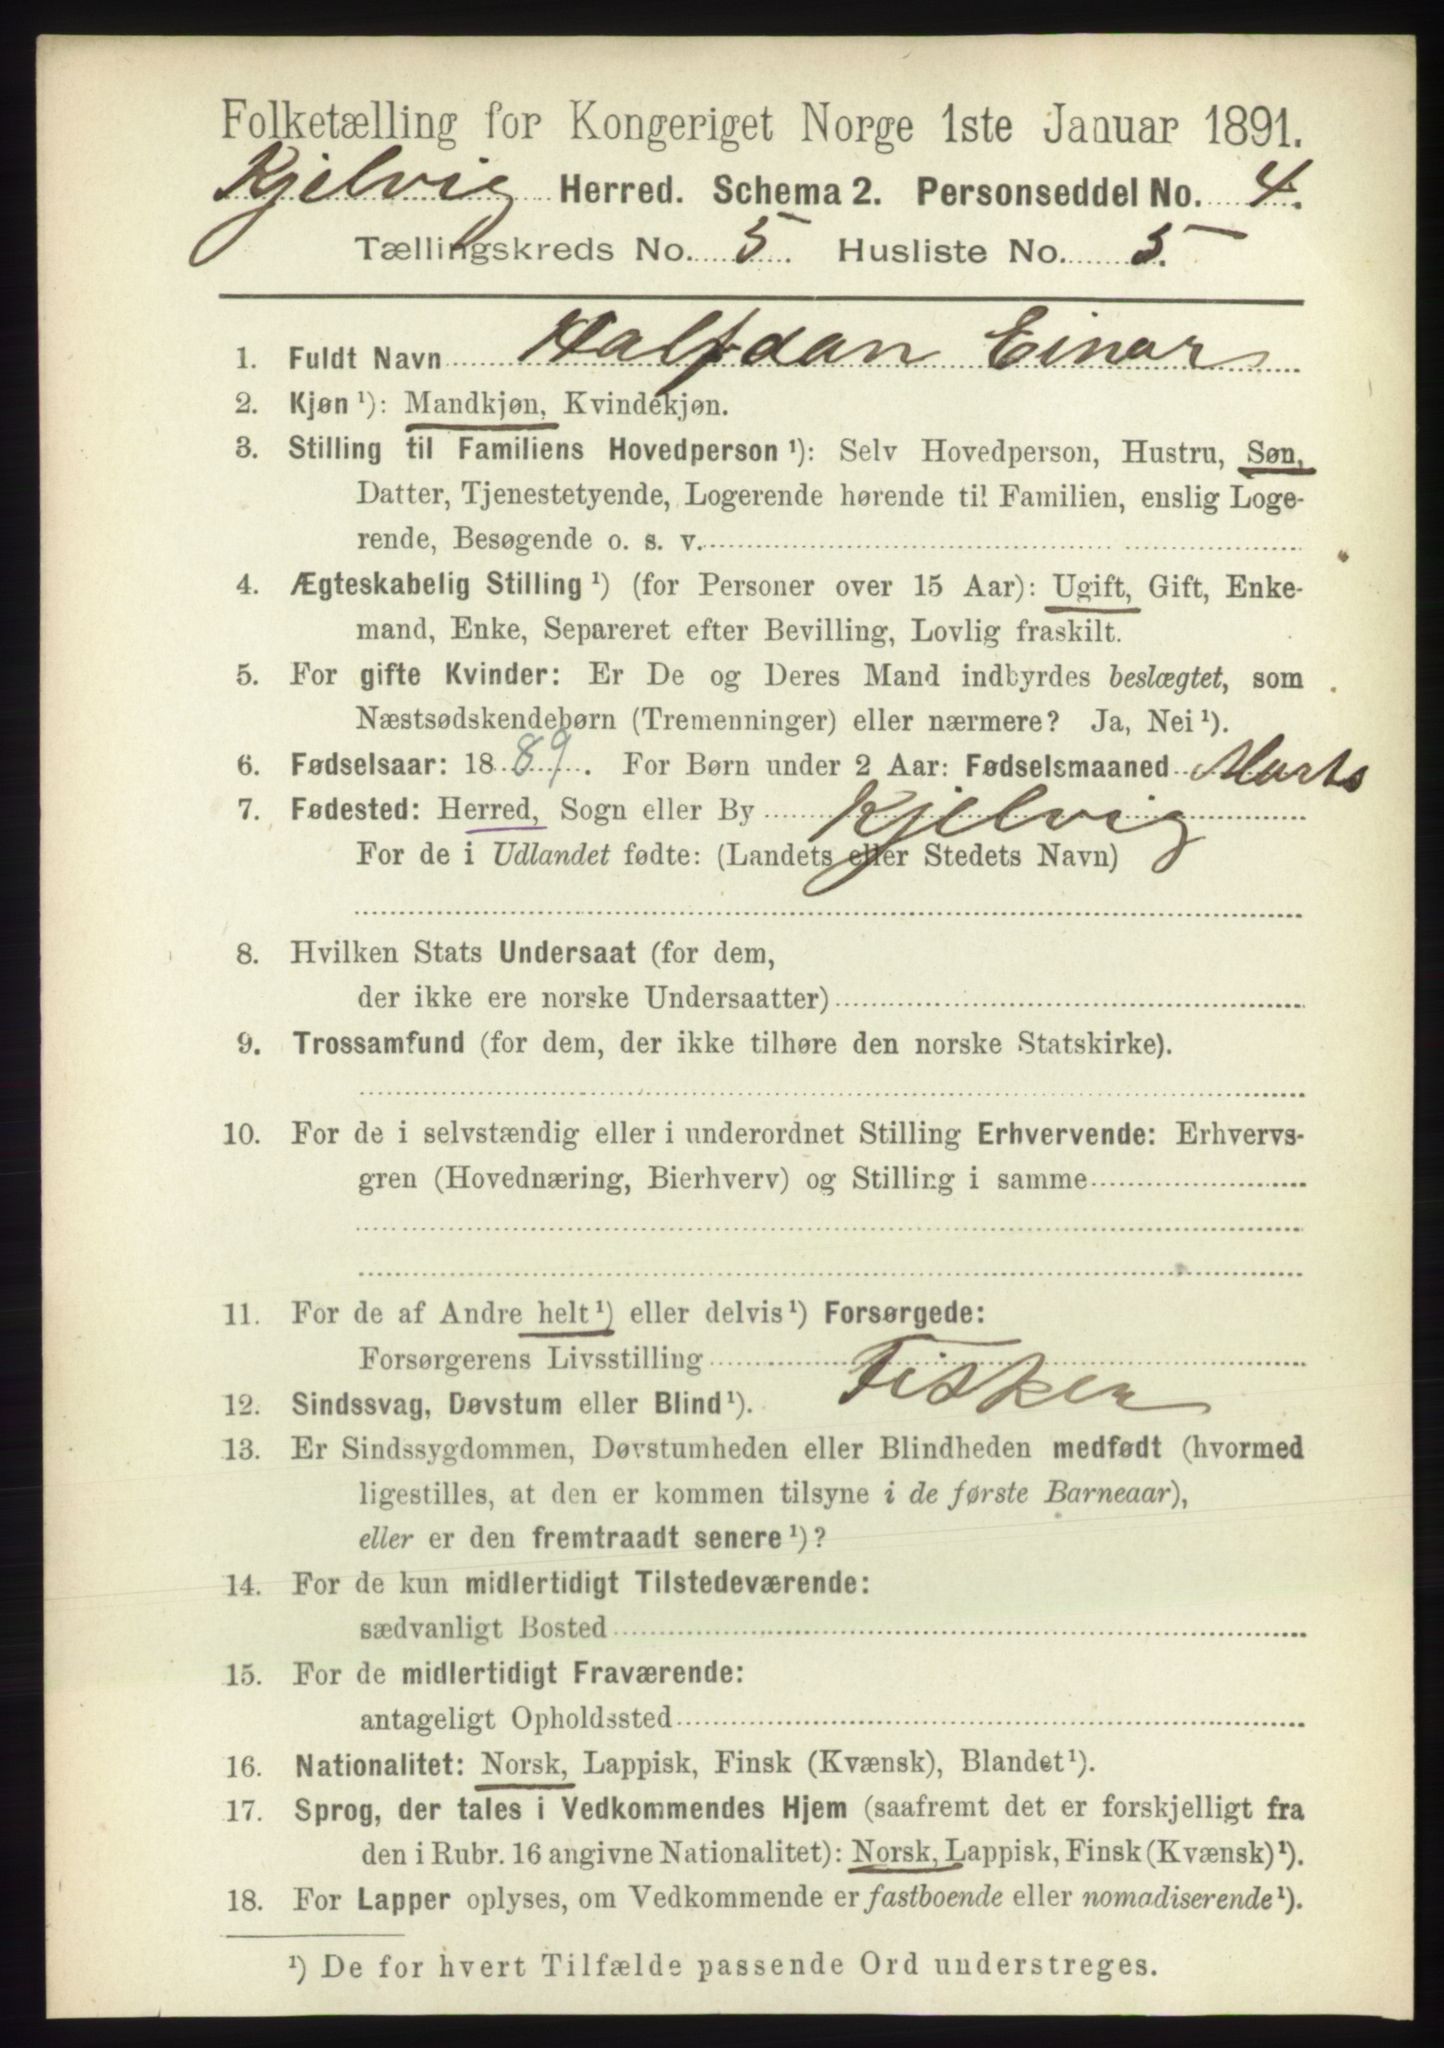 Folketælling for Kongeriget Norge 1ste Januar 1891.
Kjelvig Herred. Schema 2. Personseddel No. 4.
Tællingskreds No. 5. Husliste No. 5.
1. Fuldt Navn Halfdan Einar
2. Kjøn ¹): Mandkjøn, Kvindekjøn.
3. Stilling til Familiens Hovedperson ¹): Selv Hovedperson, Hustru, Søn,
Datter, Tjenestetyende, Logerende hørende til Familien, enslig Loge-
rende, Besøgende o. s. v.
4. Ægteskabelig Stilling ¹) (for Personer over 15 Aar): Ugift, Gift, Enke-
mand, Enke, Separeret efter Bevilling, Lovlig fraskilt.
5. For gifte Kvinder: Er De og Deres Mand indbyrdes beslægtet, som
Næstsødskendebørn (Tremenninger) eller nærmere? Ja, Nei ¹).
6. Fødselsaar: 1889. For Børn under 2 Aar: Fødselsmaaned Marts
7. Fødested: Herred, Sogn eller By Kjelvig
For de i Udlandet fødte: (Landets eller Stedets Navn)
8. Hvilken Stats Undersaat (for dem,
der ikke ere norske Undersaatter)
9. Trossamfund (for dem, der ikke tilhøre den norske Statskirke).
10. For de i selvstændig eller i underordnet Stilling Erhvervende: Erhvervs-
gren (Hovednæring, Bierhverv) og Stilling i samme
11. For de af Andre helt ¹) eller delvis ¹) Forsørgede:
Forsørgerens Livsstilling Fisker
12. Sindssvag, Døvstum eller Blind ¹).
13. Er Sindssygdommen, Døvstumheden eller Blindheden medfødt (hvormed
ligestilles, at den er kommen tilsyne i de første Barneaar),
eller er den fremtraadt senere ¹)?
14. For de kun midlertidigt Tilstedeværende:
sædvanligt Bosted
15. For de midlertidigt Fraværende:
antageligt Opholdssted
16. Nationalitet: Norsk, Lappisk, Finsk (Kvænsk), Blandet ¹).
17. Sprog, der tales i Vedkommendes Hjem (saafremt det er forskjelligt fra
den i Rubr. 16 angivne Nationalitet): Norsk, Lappisk, Finsk (Kvænsk) ¹).
18. For Lapper oplyses, om Vedkommende er fastboende eller nomadiserende ¹).
¹) De for hvert Tilfælde passende Ord understreges.